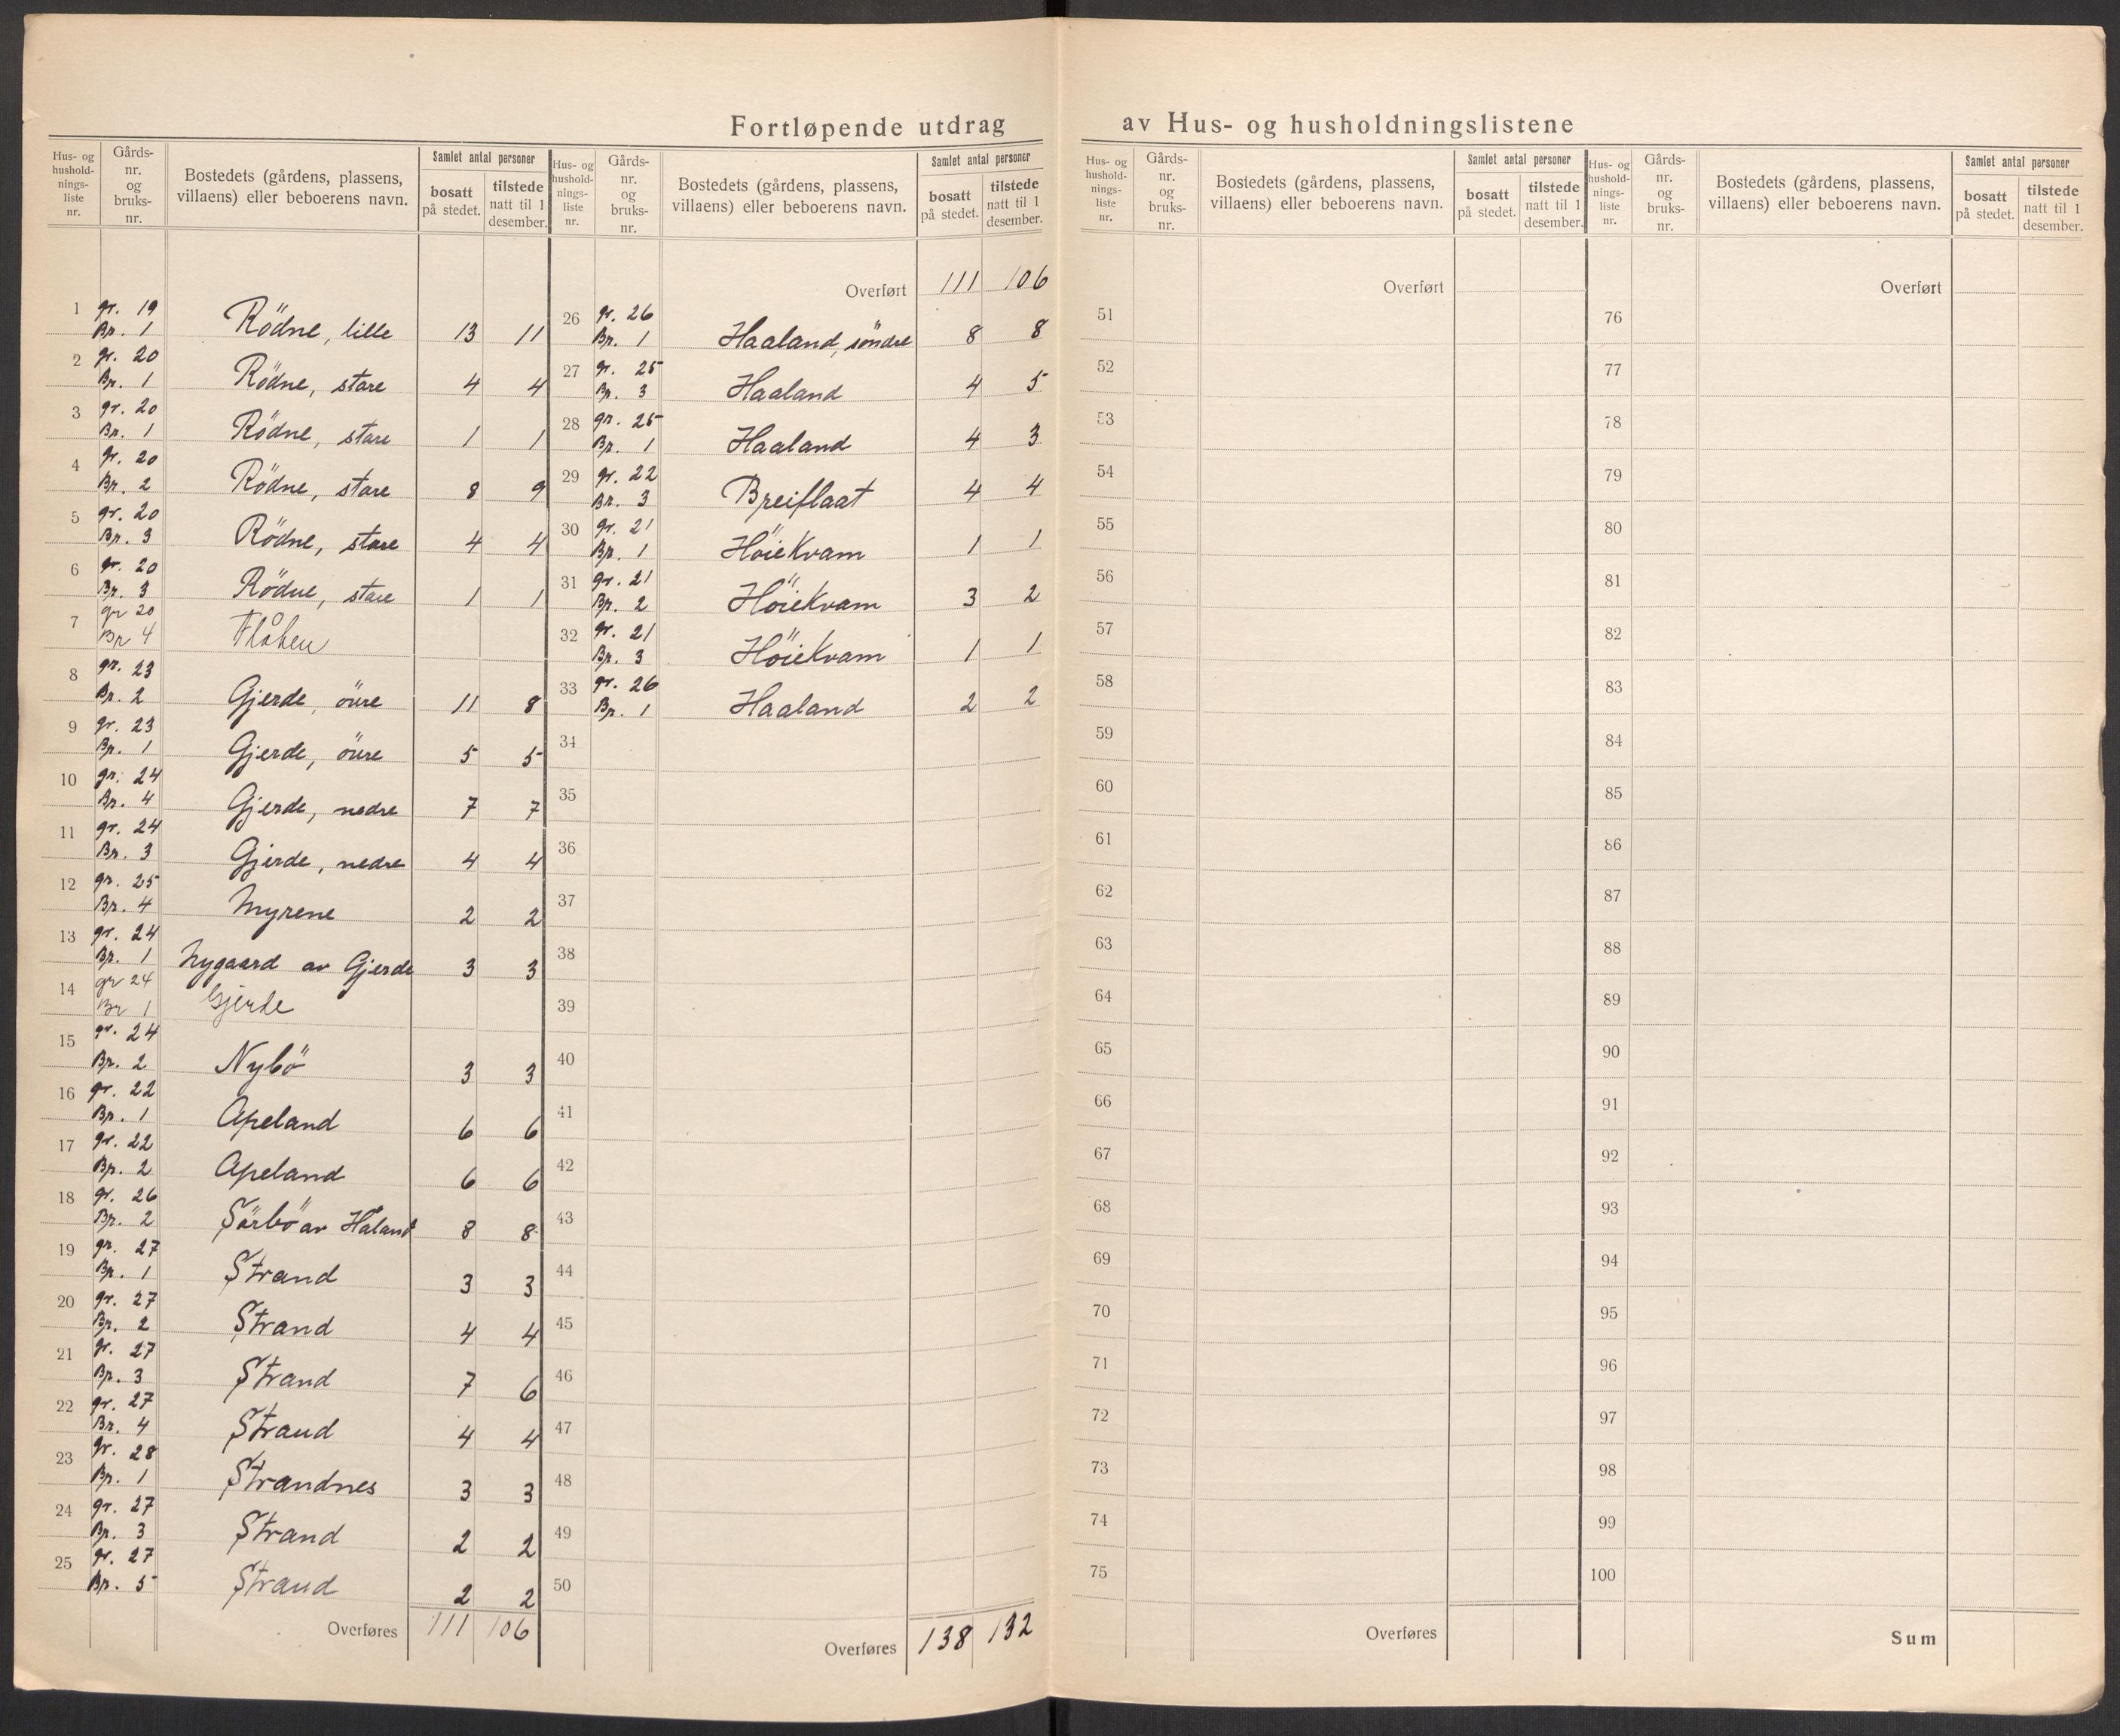 Fortløpende utdrag av Hus- og husholdningslistene
Hus- og husholdnings-liste nr. | Gårds-nr. og bruks-nr. | Bostedets (gårdens, plassens, villaens) eller beboerens navn. | Samlet antal personer | bosatt på stedet. | tilstede natt til 1 desember.
1 | gr. 19 Br. 1 | Rödne, lille | 13 | 11
2 | gr. 20 Br. 1 | Rödne, store | 4 | 4
3 | gr. 20 Br. 1 | Rödne, store | 1 | 1
4 | gr. 20 Br. 2 | Rödne, store | 8 | 9
5 | gr. 20 Br. 3 | Rödne, store | 4 | 4
6 | gr. 20 Br. 3 | Rödne, store | 1 | 1
7 | gr 20 Br 4 | Flåten
8 | gr. 23 Br. 2 | Gjerde, övre | 11 | 8
9 | gr. 23 Br. 1 | Gjerde, övre | 5 | 5
10 | gr. 24 Br. 4 | Gjerde, nedre | 7 | 7
11 | gr. 24 Br. 3 | Gjerde, nedre | 4 | 4
12 | gr. 25 Br. 4 | Myrene | 2 | 2
13 | gr. 24 Br. 1 | Nygaard av Gjerde | 3 | 3
14 | gr 24 Br 1 | Gjerde
15 | gr. 24 Br. 2 | Nybö | 3 | 3
16 | gr. 22 Br. 1 | Apeland | 6 | 6
17 | gr. 22 Br. 2 | Apeland | 6 | 6
18 | gr. 26 Br. 2 | Sörbö av Håland | 8 | 8
19 | gr. 27 Br. 1 | Strand | 3 | 3
20 | gr. 27 Br. 2 | Strand | 4 | 4
21 | gr. 27 Br. 3 | Strand | 7 | 6
22 | gr. 27 Br. 4 | Strand | 4 | 4
23 | gr. 28 Br. 1 | Strandnes | 3 | 3
24 | gr. 27 Br. 3 | Strand | 2 | 2
25 | gr. 27 Br. 5 | Strand | 2 | 2
Overføres | 111 | 106
Hus- og husholdnings-liste nr. | Gårds-nr. og bruks-nr. | Bostedets (gårdens, plassens, villaens) eller beboerens navn. | Samlet antal personer | bosatt på stedet. | tilstede natt til 1 desember.
Overført | 111 | 106
26 | gr. 26 Br. 1 | Haaland, söndre | 8 | 8
27 | gr. 25 Br. 3 | Haaland | 4 | 5
28 | gr. 25 Br. 1 | Haaland | 4 | 3
29 | gr. 22 Br. 3 | Breiflaat | 4 | 4
30 | gr. 21 Br. 1 | Höiekvam | 1 | 1
31 | gr. 21 Br. 2 | Höiekvam | 3 | 2
32 | gr. 21 Br. 3 | Höiekvam | 1 | 1
33 | gr. 26 Br. 1 | Haaland | 2 | 2
34
35
36
37
38
39
40
41
42
43
44
45
46
47
48
49
50
Overføres | 138 | 132
Hus- og husholdnings-liste nr. | Gårds-nr. og bruks-nr. | Bostedets (gårdens, plassens, villaens) eller beboerens navn. | Samlet antal personer | bosatt på stedet. | tilstede natt til 1 desember.
Overført
51
52
53
54
55
56
57
58
59
60
61
62
63
64
65
66
67
68
69
70
71
72
73
74
75
Overføres
Hus- og husholdnings-liste nr. | Gårds-nr. og bruks-nr. | Bostedets (gårdens, plassens, villaens) eller beboerens navn. | Samlet antal personer | bosatt på stedet. | tilstede natt til 1 desember.
Overført
76
77
78
79
80
81
82
83
84
85
86
87
88
89
90
91
92
93
94
95
96
97
98
99
100
Sum